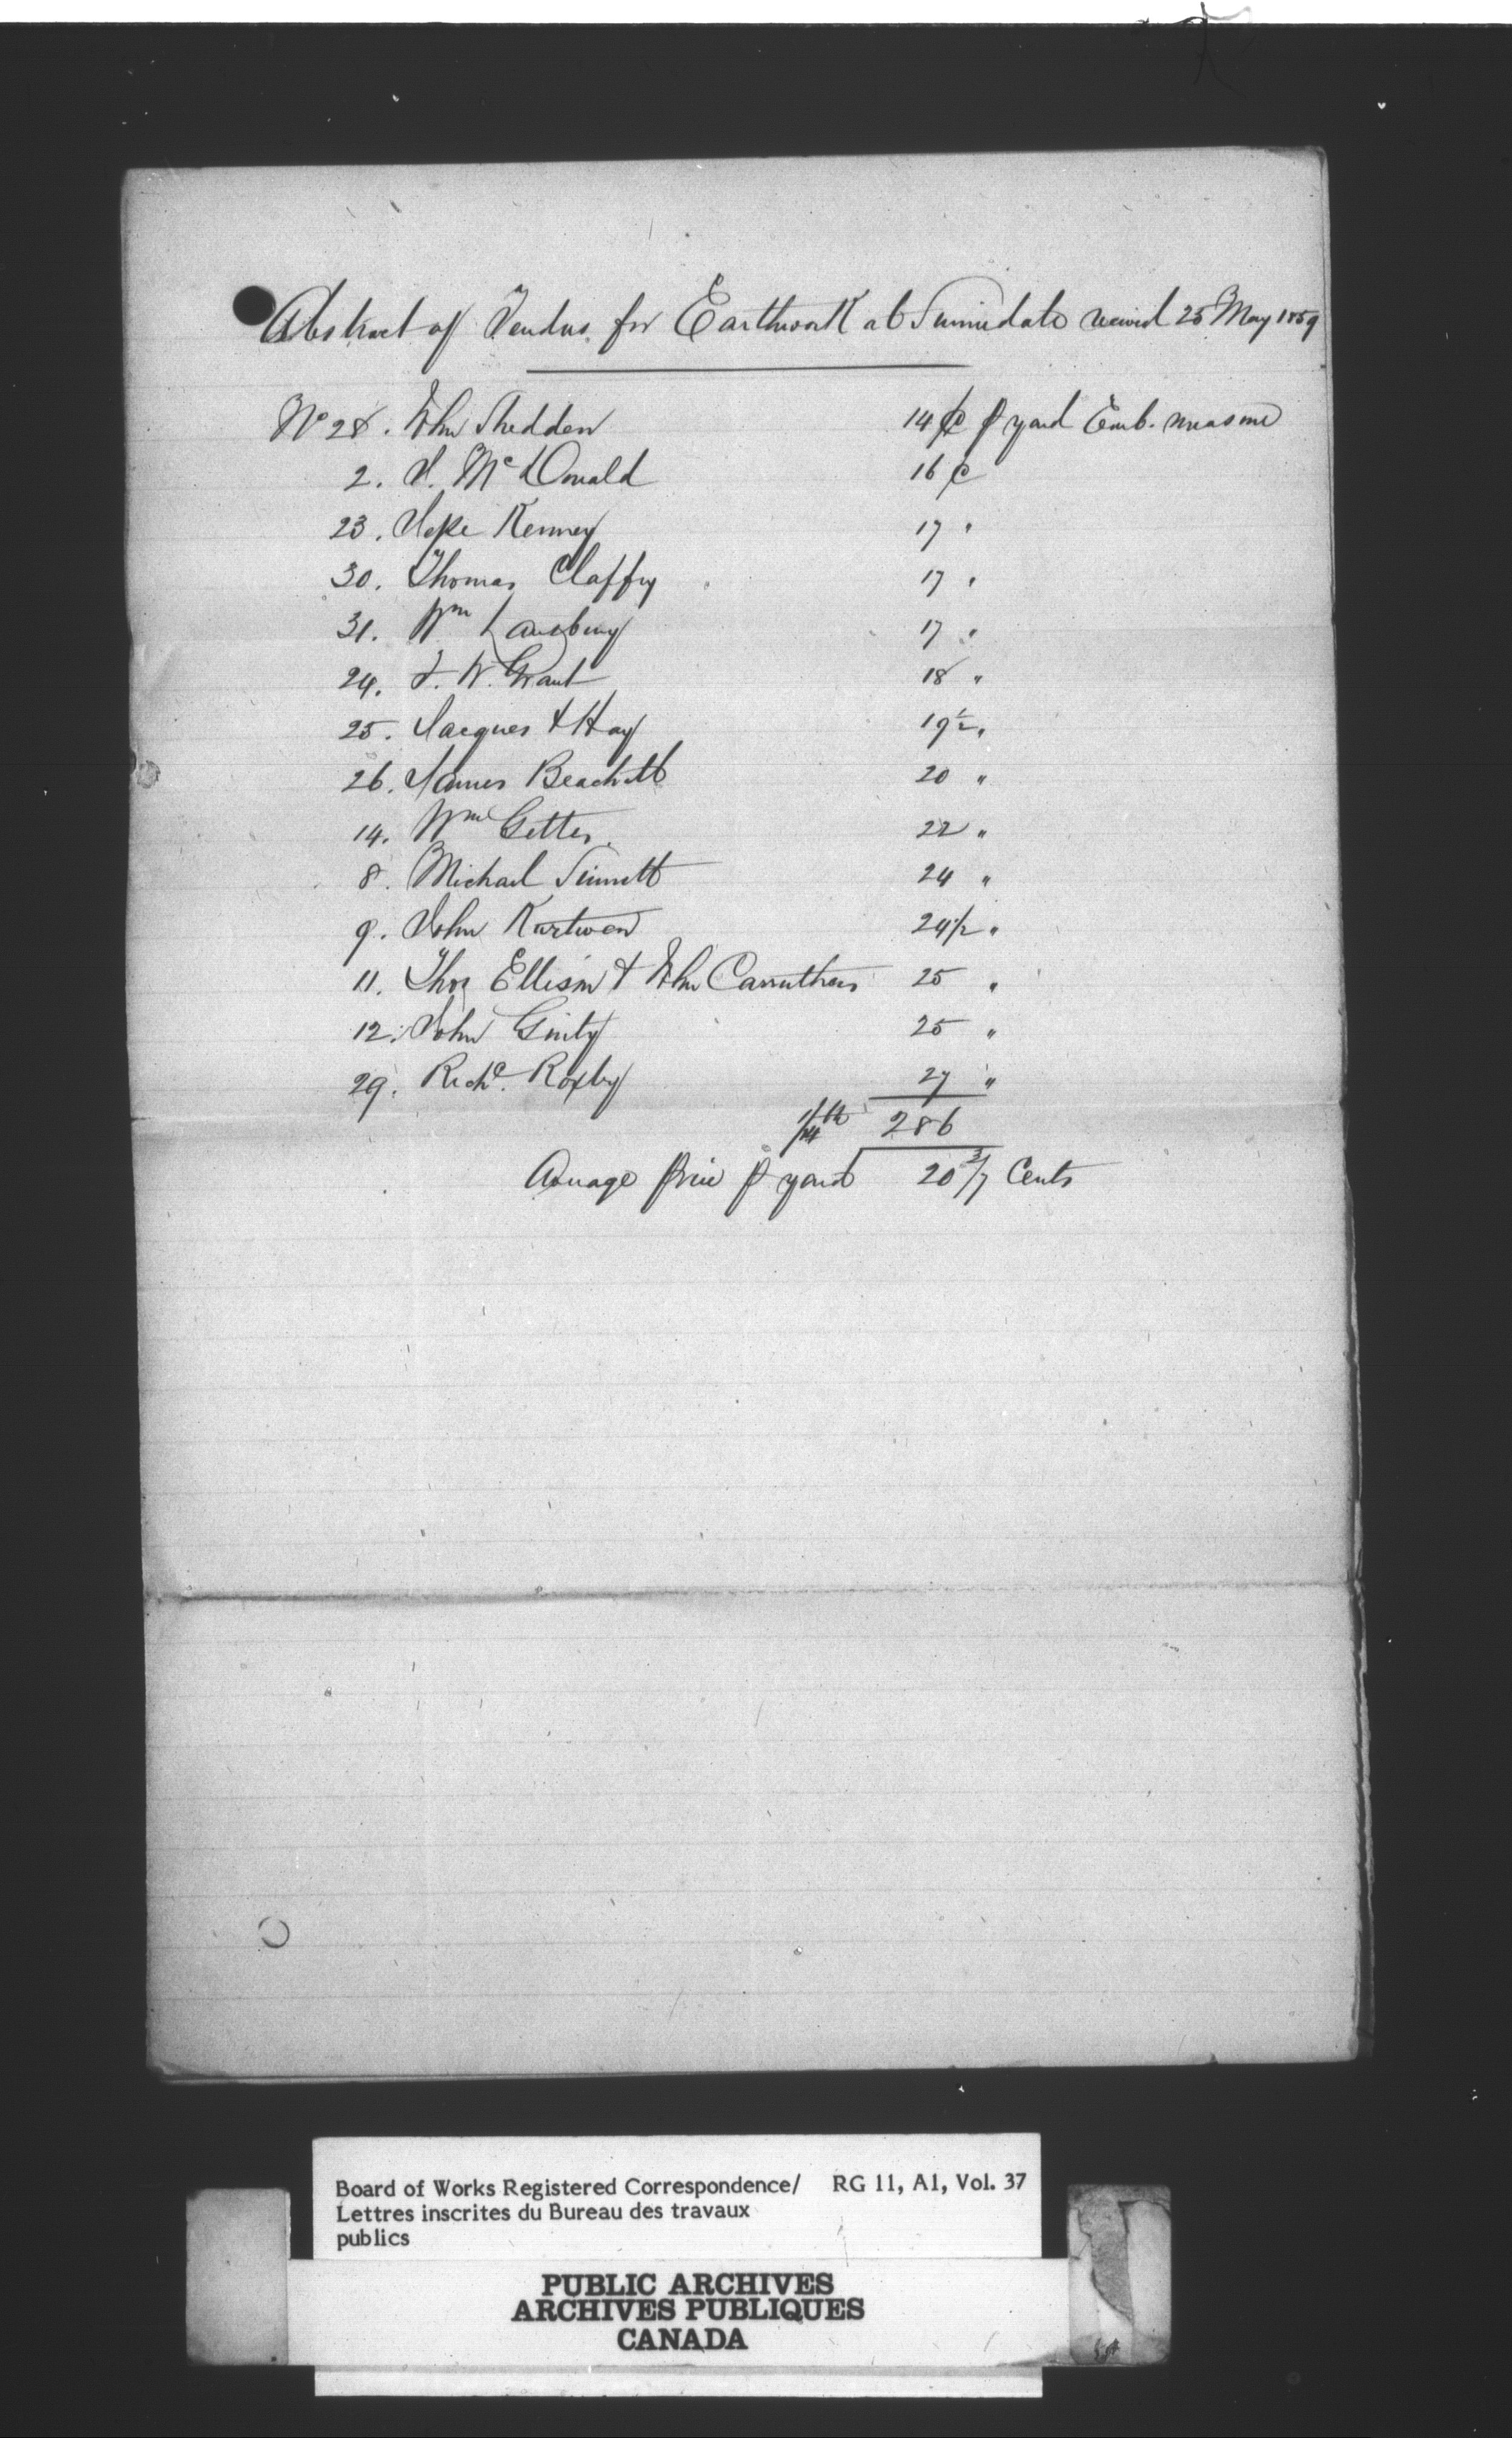 Abstract of Tenders for Earthwork at Sunnidale received 25 May 1859
No 28. John Shedden 14 ¢ p yard Emb. measure
2. D. McDonald 16 ¢
23. Kenney 17 "
30. Thomas Claffey 17 "
31. Wm 17 "
24. W. Grant 18 "
25. Jacques & Hay 19 1/2 "
26. James Beachell 20 "
14. Wm Getter 22 "
8. Michael Sinnott 24 "
9. John Kirtwen 24 1/2 "
11. Thos Ellison & John Carruthers 25 "
12. John Ginty 25 "
29. Richd. Roxby 27 "
1/14th 286
Average price p yard 20 3/7 Cents
Board of Works Registered Correspondence/ RG 11, A1, Vol. 37
Lettres inscrites du Bureau des travaux
publics
PUBLIC ARCHIVES
ARCHIVES PUBLIQUES
CANADA